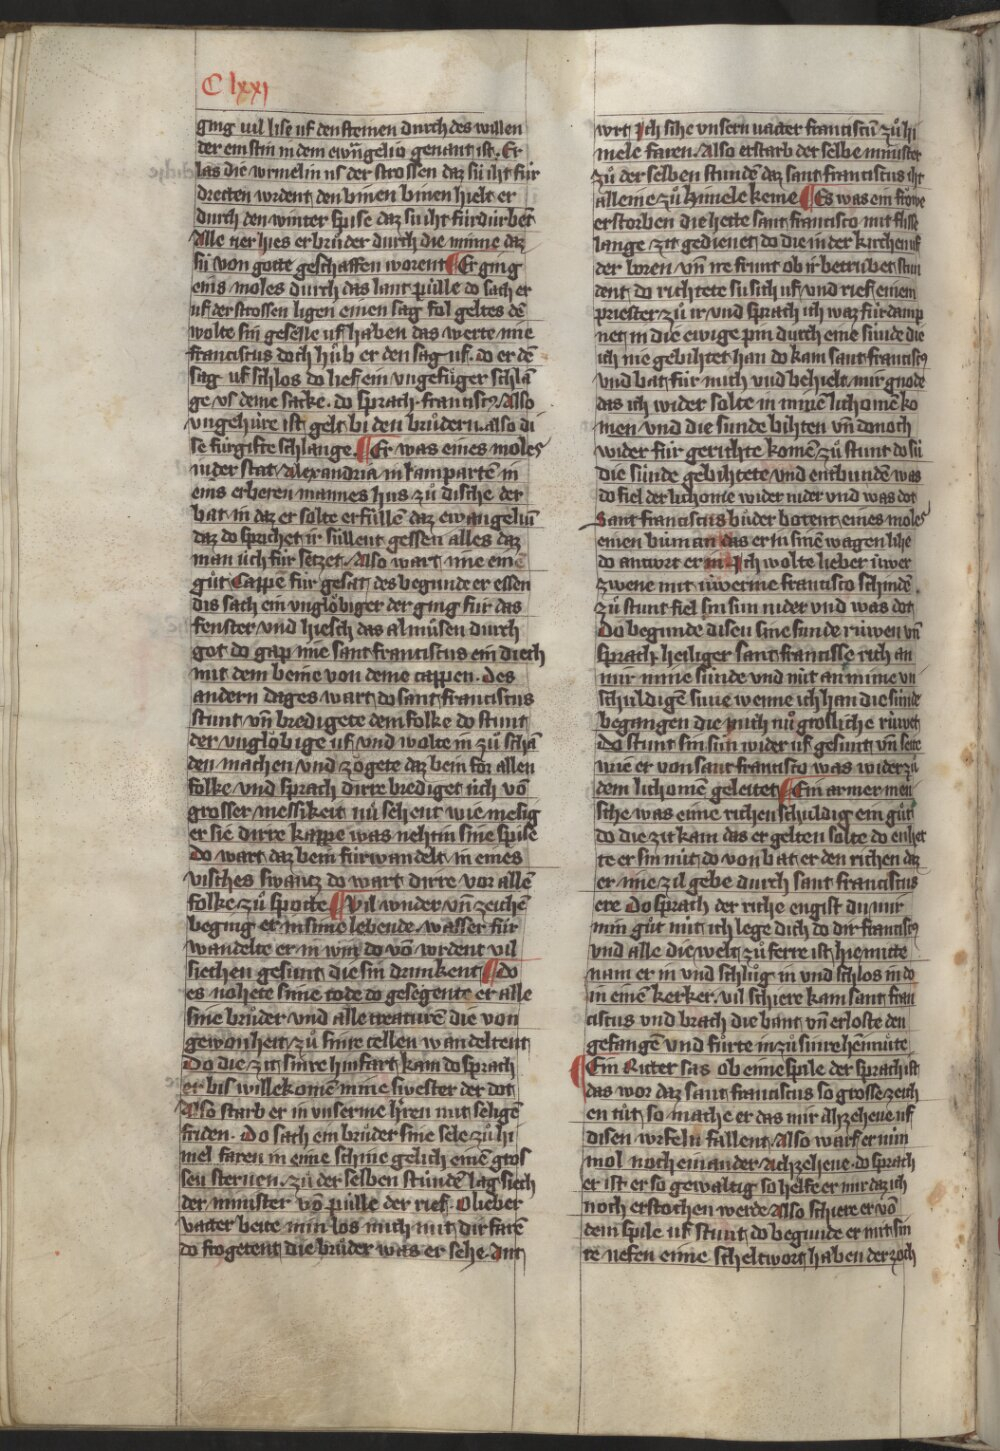 C lxxj
ging vil lise uf den steinen durch des willen
der ein stin in dem ewangelio genant ist. Er
las die wrmelin us der strossen daz sü iht für
dretten wrdent den binen binen hielt er
durch den winter spise daz su iht fürdürbēt
Alle tier hies er brůder durch die minne daz
sü von gotte geschaffen worent ¶ Er ging
eins moles durch das lant pülle do sach er
uf der strossen ligen einen sag fol geltes dē
wolte sin geselle uf haben das werte ime
franciscus doch hůb er den sag uf. do er dē
sag uf schlos do lief ein ungefůger schlā
ge us deme sacke. do sprach franciscꝰ Also
ungehüre ist gelt bi den brůdern also di
se fürgifte schlange ¶ Er was eines moles
in der stat Alexandria in lamparten in
eins erberen mannes hus zů dische der
bat in daz er solte erfüllē daz ewangeliū
daz do sprichet ir süllent gessen alles daz
man üch für setzet. Also wart ime ein
gůt Cappe für gesat des begunde er essen
dis sach ein unglöbiger der ging für das
fenster und hiesch das almůsen durch
got do gap ime sant franciscus ein diech
mit dem beine von deme cappen. Des
andern dages wart do sant franciscus
stunt vn̄ bredigete dem folke do stunt
der unglöbige uf und wolte in zů schā
den machen und zögete daz bein for allen
folke und sprach dirre brediget üch vō
grosser messikeit nů sehent wie mesig
er sie dirre kappe was nehtin sine spise
Do wart daz bein fürwandelt in eines
visches swantz do wart dirre vor allē
folke zů spotte ¶ Vil wnder vn̄ zeichē
beging er in sime lebende wasser für
wandelte er in win do vō wrdent vil
siechen gesunt die sin drunkent ¶ do
es nohete sime tode do gesegente er alle
sine brůder und alle creaturē die von
gewonheit zů sinre cellen wandeltent
Do die zit sinre hinfart kam do sprach
er bis willekomē mine swester der dot
Also starb er in unserme h̄ren mit seligē
friden. Do sach ein brůder sine sele zů hi
mel faren in eime schine gelich einē gros
sen sternen. zů der selben stundē lag siech
der minister vō pülle der rief. O lieber
vatter beite min los mich mit dir farē
do frogetent die brůder was er sehe. Ant
wrt Ich sihe unsern vatter franciscū zů hi
mele faren. Also erstarb der selbe minister
zů der selben stundē daz sant franciscus iht
alleine zů himele keme ¶ Es was ein frowe
erstorben die hette sant francisco mit flisse
lange zit gedienet do die in der kirchen uf
der boren vn̄ ire frunt ob ir betrübet stun
dent do richtete su sich uf und rief einem
priester zů ir und sprach ich waz fürdamp
net in die ewige pin durch eine sünde die
ich nie gebihtet han do kam sant franciscꝰ
und bat für mich und behielt mir gnode
das ich wider solte in minē lichomē ko
men und die sünde bihten vn̄ donoch
wider für gerichte komē zů stunt do sü
die sünde gebihtete und entbundē was
do fiel der lichome wider nider und was dot
Sant franciscus brüder botent eines moles
einen buman das er in sinē wagen lihe
do antwrt er in Ich wolte lieber üwer
zwene mit üwerme francisco schindē.
zů stunt fiel sin sun nider und was dot
Do begunde disen sine sünde rüwen vn̄
sprach heiliger sant francisse rich an
mir mine sünde und nüt an mime un
schuldigē sune wenne ich han die sünde
begangen die mich nů groslich rüwet
Do stunt sin sun wider uf gesunt vn̄ seite
wie er von sant francisco was wider zů
dem lichomē geleitet ¶ Ein armer men
sche was eime richen schuldig ein gůt
do die zit kam das er gelten solte do enhet
te er sin nüt do von bat er den richen daz
er ime zil gebe durch sant franciscus
ere Do sprach der riche engist du mir
min gůt nüt ich lege dich do dir franciscꝰ
und alle die welt zů ferre ist hie mitte
nam er in und schlůg in und schlos in do
in einē kerker. vil schiere kam sant fran
ciscus und brach die bant vn̄ erloste den
gefangē und fůrte in zů sinre heimüte
¶ Ein Ritter sas ob eime spile der sprach ist
das wor daz sant franciscus so grosse zeich
en tůt so mache er das mir ahzehene uf
disen wrfeln fallent Also warf er nün
mol noch einander Achzehene. do sprach
er ist er so gewaltig so helfe er mir daz ich
noch erstochen werde Also schiere er vō
dem spile uf stunt do begunde er mit sin
te nefen eine scheltwort haben der zoch